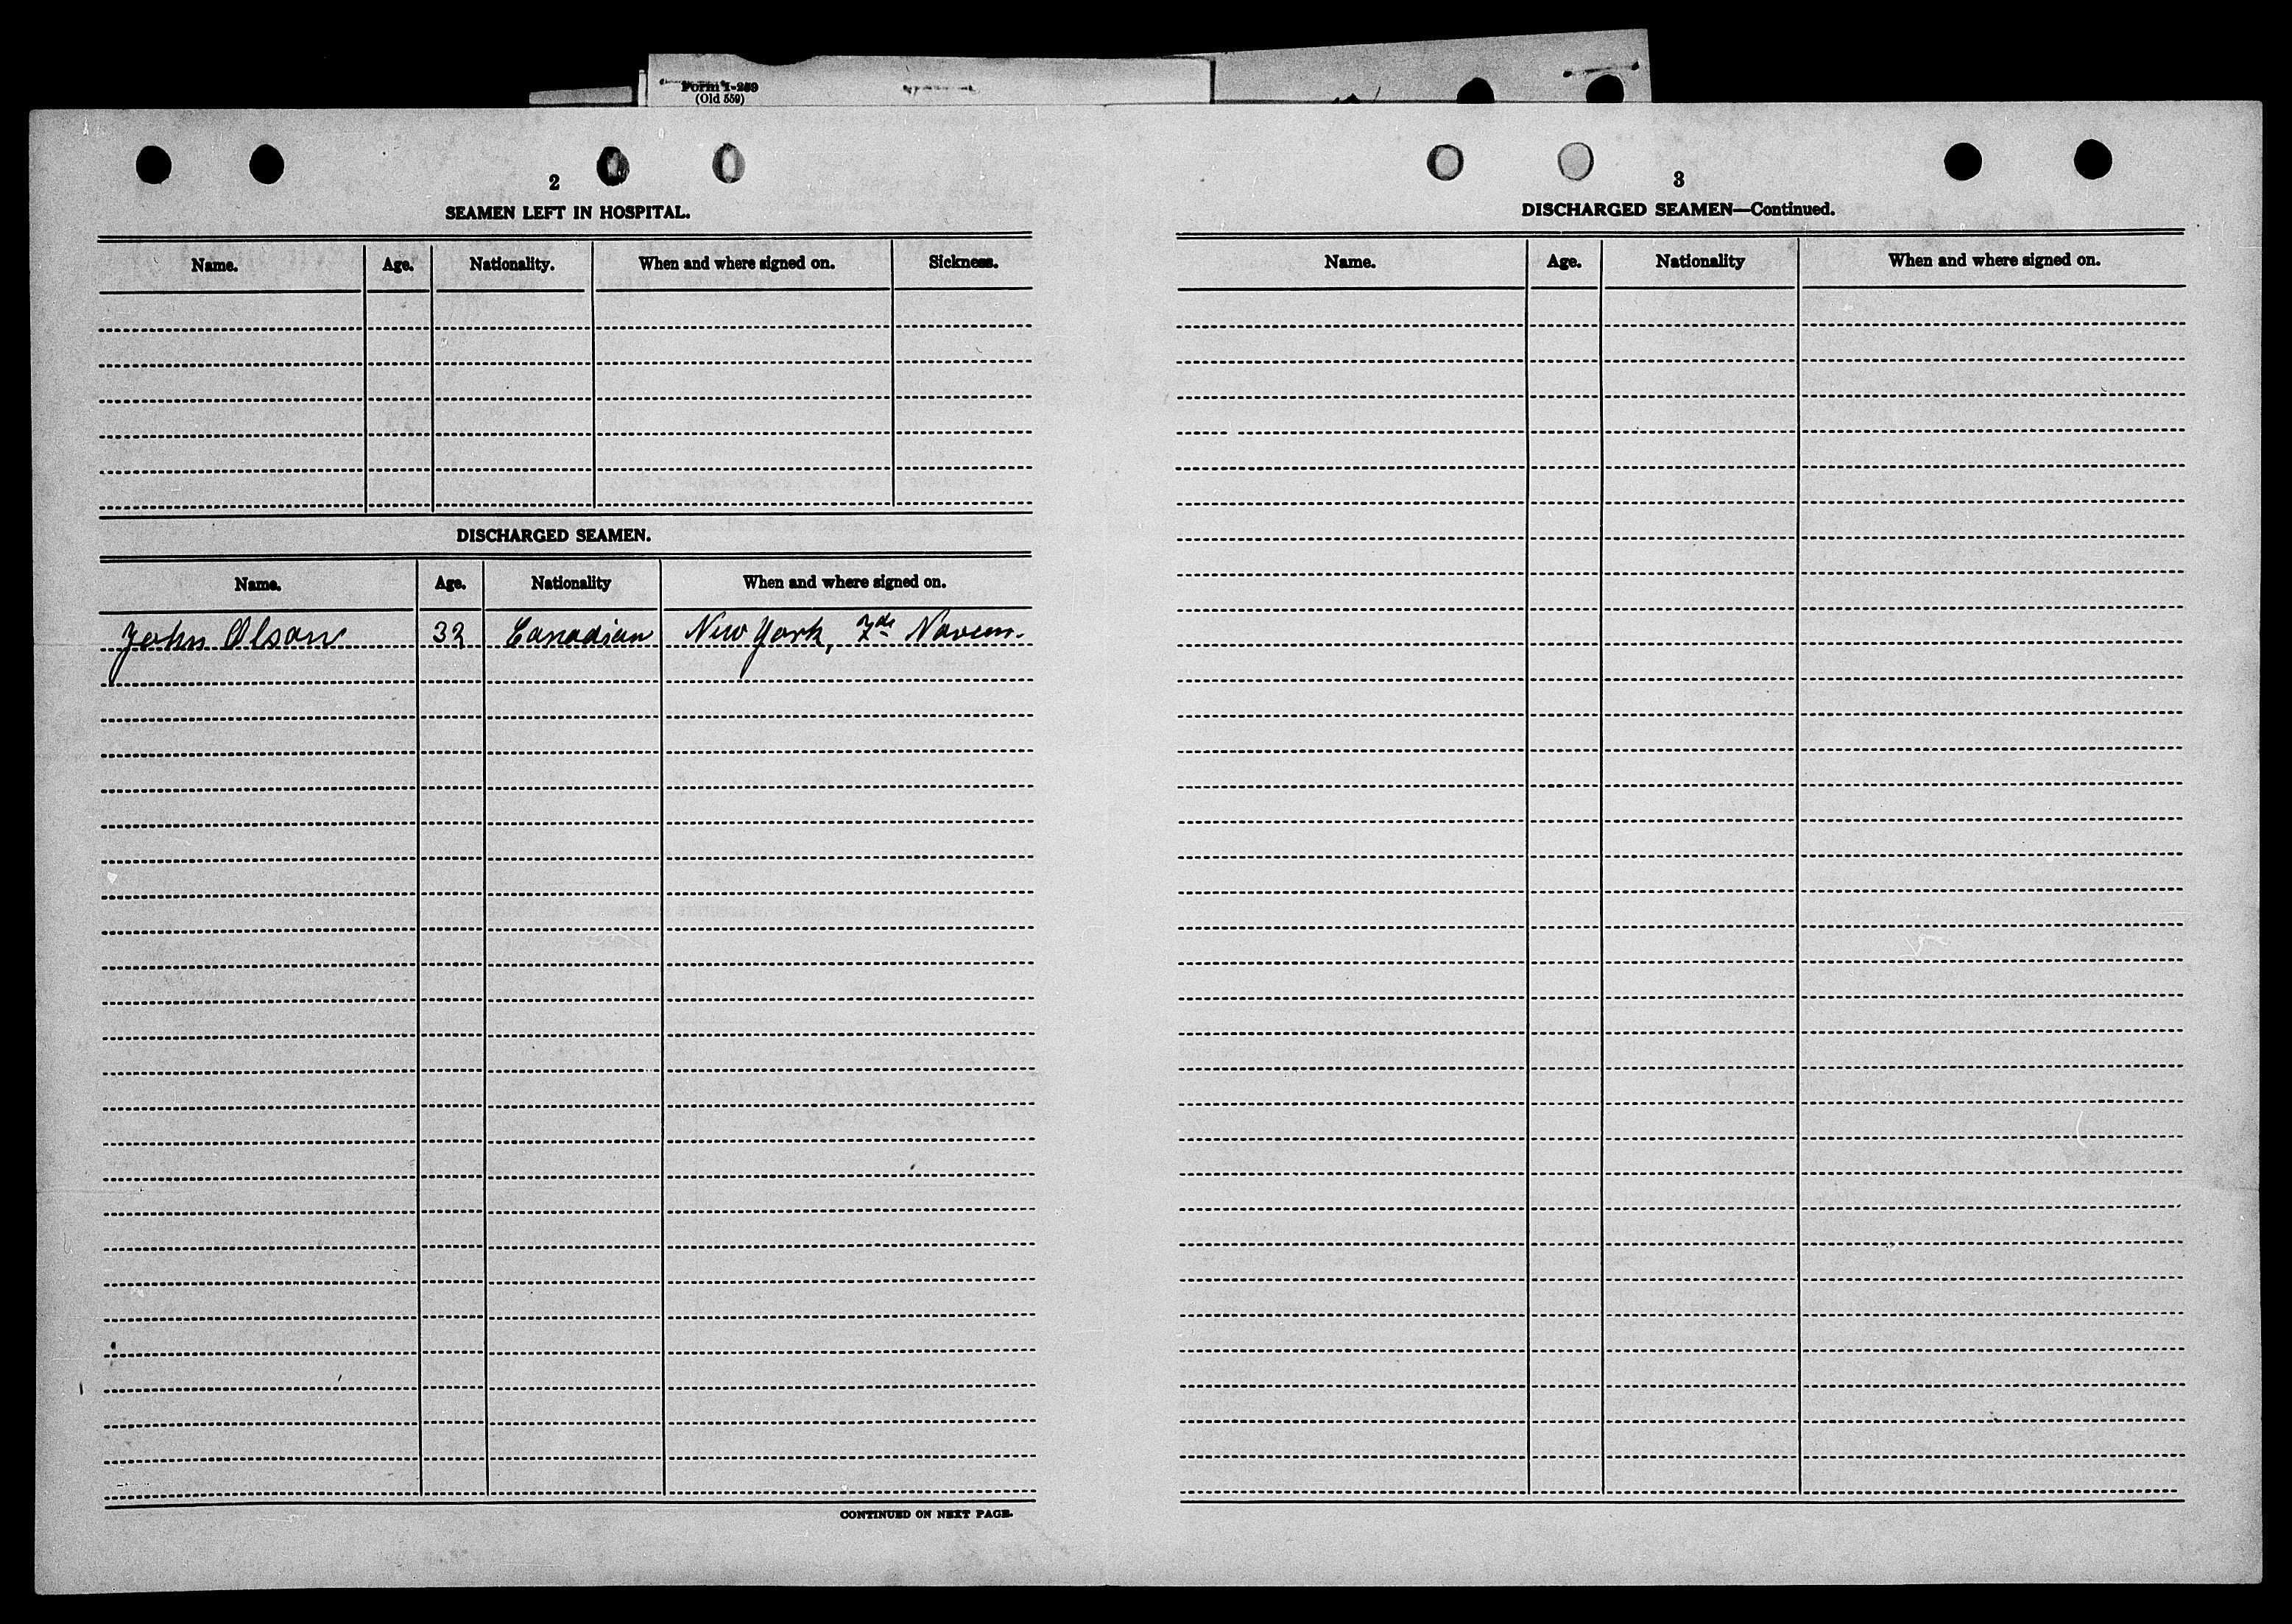 Form I-259
(Old 559)
2
SEAMEN LEFT IN HOSPITAL.
Name. Age. Nationality. When and where signed on. Sickness.
DISCHARGED SEAMEN.
Name. Age. Nationality When and where signed on.
John Olson 32 Canadian New York, Novem.
CONTINUED ON NEXT PAGE.
3
DISCHARGED SEAMEN—Continued.
Name. Age. Nationality When and where signed on.